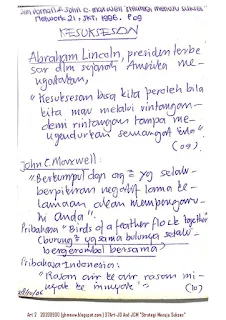 Jim Dornan & John C. Maxwell "Strategi Menuju Sukses"
Network 21, Jkt, 1996. P 09
KESUKSESAN
Abraham Lincoln, presiden terbe
sar dlm sejarah Amerika me-
ngatakan,
"Kesuksesan bisa kita peroleh bila
kita mau melalui rintangan-
demi rintangan tanpa me-
ngendurkan semangat kita"
(09)
John C. Maxwell:
"Berkumpul dan org² yg selalu
berpikiran negatif lama ke-
lamaan akan mempengaru
hi anda".
Pribahasa "Birds of a feather flock together
(burung² yg sama bulunya selalu
bergerombol bersama)
Pribahasa Indonesia:
"Rasam air ke air rasam mi-
nyak ke minyak"
(10)
Art 2 20200930 (ghmnow.blogspot.com) 37Art-JD And JCM "Strategi Menuju Sukses"